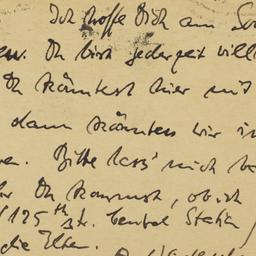 Ich hoffe Dich am So
en. Du bist jederzeit will
Du könntest hier mit
dann könnten wir in
en. Bitte lass' mich b
Du kommst, ob ich
/125th Str. Central Station
die Eltern.